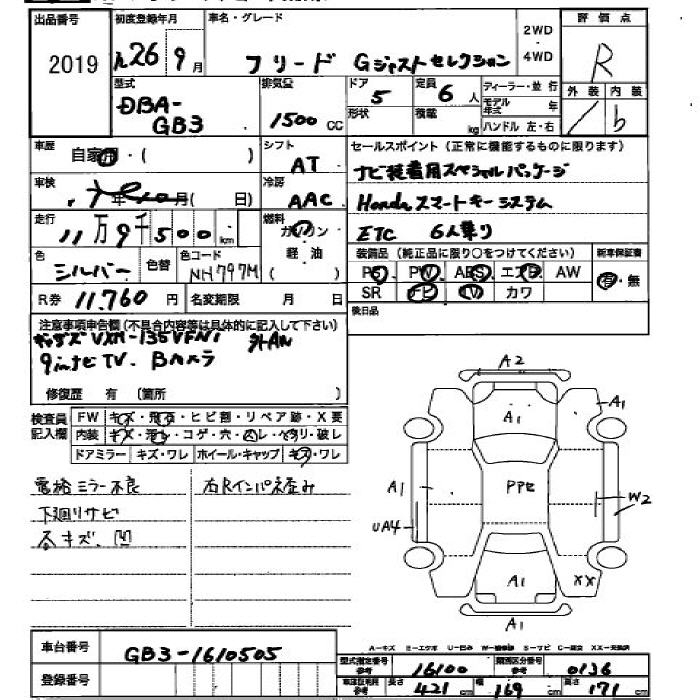 出品番号
2019
初度登録年月
h26年9月
車名・グレード
フリード Gジャストセレクション
2WD
4WD
評価点
R
型式
DBA-
GB3
排気量
1500cc
ドア
5
形状
定員
6人
積載
kg
ディーラー・並行
モデル年式 年
ハンドル 左・右
外装 内装
b
車歴
自家用・( )
シフト
AT
セールスポイント (正常に機能するものに限ります)
ナビ装着用スペシャルパッケージ
Hondaスマートキーシステム
ETC 6人乗り
車検
年 月( 日)
冷房
AAC
走行
11万9千500km
燃料
ガソリン
軽油
( )
色
シルバー
色替
色コード
NH797M
装備品 (純正品に限り○をつけてください)
PS PW ABS エアB AW
SR ナビ TV カワ
新車保証書
有・無
R券 11,760円
名変期限 月 日
後日品
注意事項申告欄 (不具合内容等は具体的に記入して下さい)
ギャザズ VXM-135VFNi 外AN
9inナビTV. Bカメラ
修復歴 有 (箇所 )
検査員
記入欄
FW キズ・飛石・ヒビ割・リペア跡・X要
内装 キズ・汚れ・コゲ・穴・スレ・ヘタリ・破レ
ドアミラー キズ・ワレ ホイール・キャップ キズ・ワレ
電格ミラー不良
下廻りサビ
各キズ、凹
右Rインパネ歪み
A2
A1
A1
A1
PPセ
W2
UA4
A1
XX
A1
車台番号
GB3-1610505
登録番号
型式指定番号
参考
16100
類別区分番号
参考
0136
長さ 421cm 幅 169cm 高さ 171cm